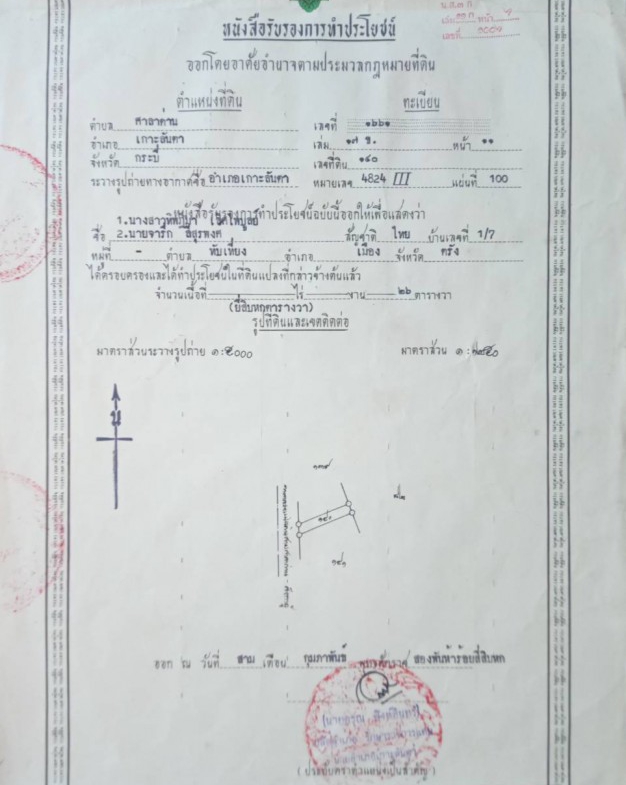 น.ส.๓ ก
เล่ม ๑๑ ก หน้า ๑
เลขที่
หนังสือรับรองการทำประโยชน์
ออกโดยอาศัยอำนาจตามประมวลกฎหมายที่ดิน
ตำแหน่งที่ดิน ทะเบียน
ตำบล ศาลาด่าน เลขที่ ๑๖๖๑
อำเภอ เกาะลันตา เล่ม ๑๗ ข. หน้า ๑๑
จังหวัด กระบี่ เลขที่ดิน ๑๔๐
ระวางรูปถ่ายทางอากาศชื่อ อำเภอเกาะลันตา หมายเลข 4824 III แผ่นที่ 100
หนังสือรับรองการทำประโยชน์ฉบับนี้ออกให้เพื่อแสดงว่า
1.นางสาว
ชื่อ 2.นายจารึก สัญชาติ ไทย บ้านเลขที่ 1/7
หมู่ที่ - ตำบล ทับเที่ยง อำเภอ เมือง จังหวัด ตรัง
ได้ครอบครองและได้ทำประโยชน์ในที่ดินแปลงที่กล่าวข้างต้นแล้ว
จำนวนเนื้อที่ ไร่ งาน ๒๖ ตารางวา
(ยี่สิบหกตารางวา)
รูปที่ดินและเขตติดต่อ
มาตราส่วนระวางรูปถ่าย ๑:๕๐๐๐ มาตราส่วน ๑:
น
๑๓๙
๑๔๐
๑๔๑
ออก ณ วันที่ สาม เดือน กุมภาพันธ์ พุทธศักราช สองพันห้าร้อยสี่สิบหก
( ประทับตราตำแหน่งเป็นสำคัญ )